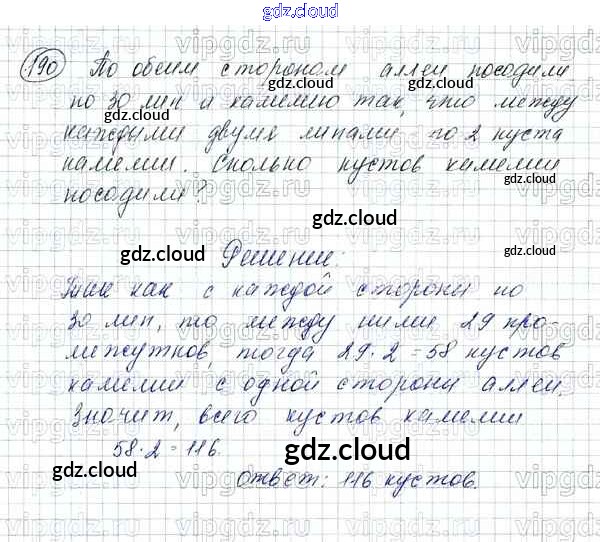 gdz.cloud
gdz.cloud
190 По обеим сторонам аллеи посадили
по 30 лип и камелию так, что между
каждыми двумя липами по 2 куста
камелии. Сколько кустов камелии
gdz.cloud
посадили?
gdz.cloud
gdz.cloud
Решение:
gdz.cloud
Так как с каждой стороны по
30 лип, то между ними 29 про-
межутков, тогда 29·2=58 кустов
камелии с одной стороны аллеи.
Значит, всего кустов камелии
58·2=116.
gdz.cloud
gdz.cloud
Ответ: 116 кустов.